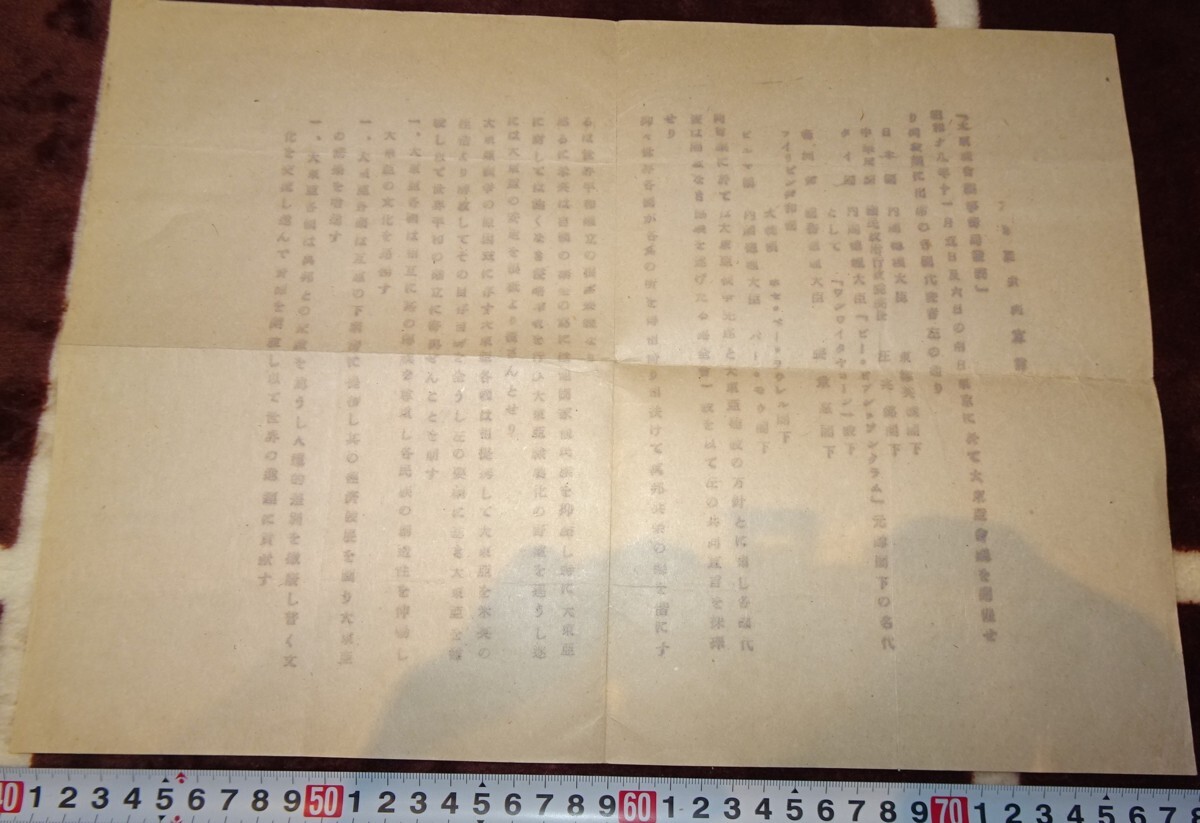 大東亞共同宣言
『大東亞會議事務局發表』
昭和十八年十一月五日及六日の両日東京に於て大東亞會議を開催せ
り同會議に出席の各國代表者左の通り
日本國　内閣總理大臣　東條英機閣下
中華民國　國民政府行政院院長　汪兆銘閣下
タイ國　内閣總理大臣『ピー・ピブン・ソンクラム』元帥閣下の名代
として『ワンワイタヤコーン』殿下
滿洲國　國務總理大臣　張景惠閣下
フイリピン共和國
大統領　ホセ・ペー・ラウレル閣下
ビルマ國　内閣總理大臣　バー・モウ閣下
同會議に於ては大東亞戰爭完遂と大東亞建設の方針とに關し各國代
表は隔意なき協議を遂げたる處全會一致を以て左の共同宣言を採擇
せり
抑々世界各國が各其の所を得相倚り相扶けて萬邦共榮の樂を偕にす
るは世界平和確立の根本要義なり
然るに米英は自國の繁榮の爲には他國家他民族を抑壓し特に大東亞
に對しては飽くなき侵略搾取を行ひ大東亞隷屬化の野望を逞うし遂
には大東亞の安定を根柢より覆さんとせり
大東亞戰爭の原因茲に存す大東亞各國は相提携して大東亞を米英の
桎梏より解放してその自存自衞を全うし左の要綱に基き大東亞を建
設し以て世界平和の確立に寄與せんことを期す
一、大東亞各國は相互に其の傳統を尊重し各民族の創造性を伸暢し
大東亞の文化を昂揚す
一、大東亞各國は互惠の下緊密に提携し其の經濟發展を圖り大東亞
の繁榮を増進す
一、大東亞各國は萬邦との交誼を篤うし人種的差別を撤廢し普く文
化を交流し進んで資源を開放し以て世界の進運に貢獻す
40 1 2 3 4 5 6 7 8 9 50 1 2 3 4 5 6 7 8 9 60 1 2 3 4 5 6 7 8 9 70 1 2 3 4 5 6 7 8